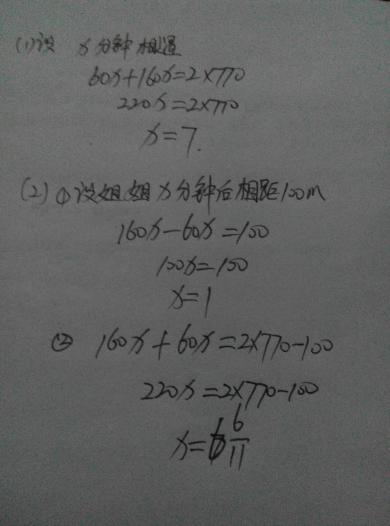 (1)设 x分钟相遇
60x+160x=2×770
220x=2×770
x=7.
(2)①设姐姐x分钟后相距100m
160x-60x=100
100x=100
x=1
② 160x+60x=2×770-100
220x=2×770-100
x=6 6/11